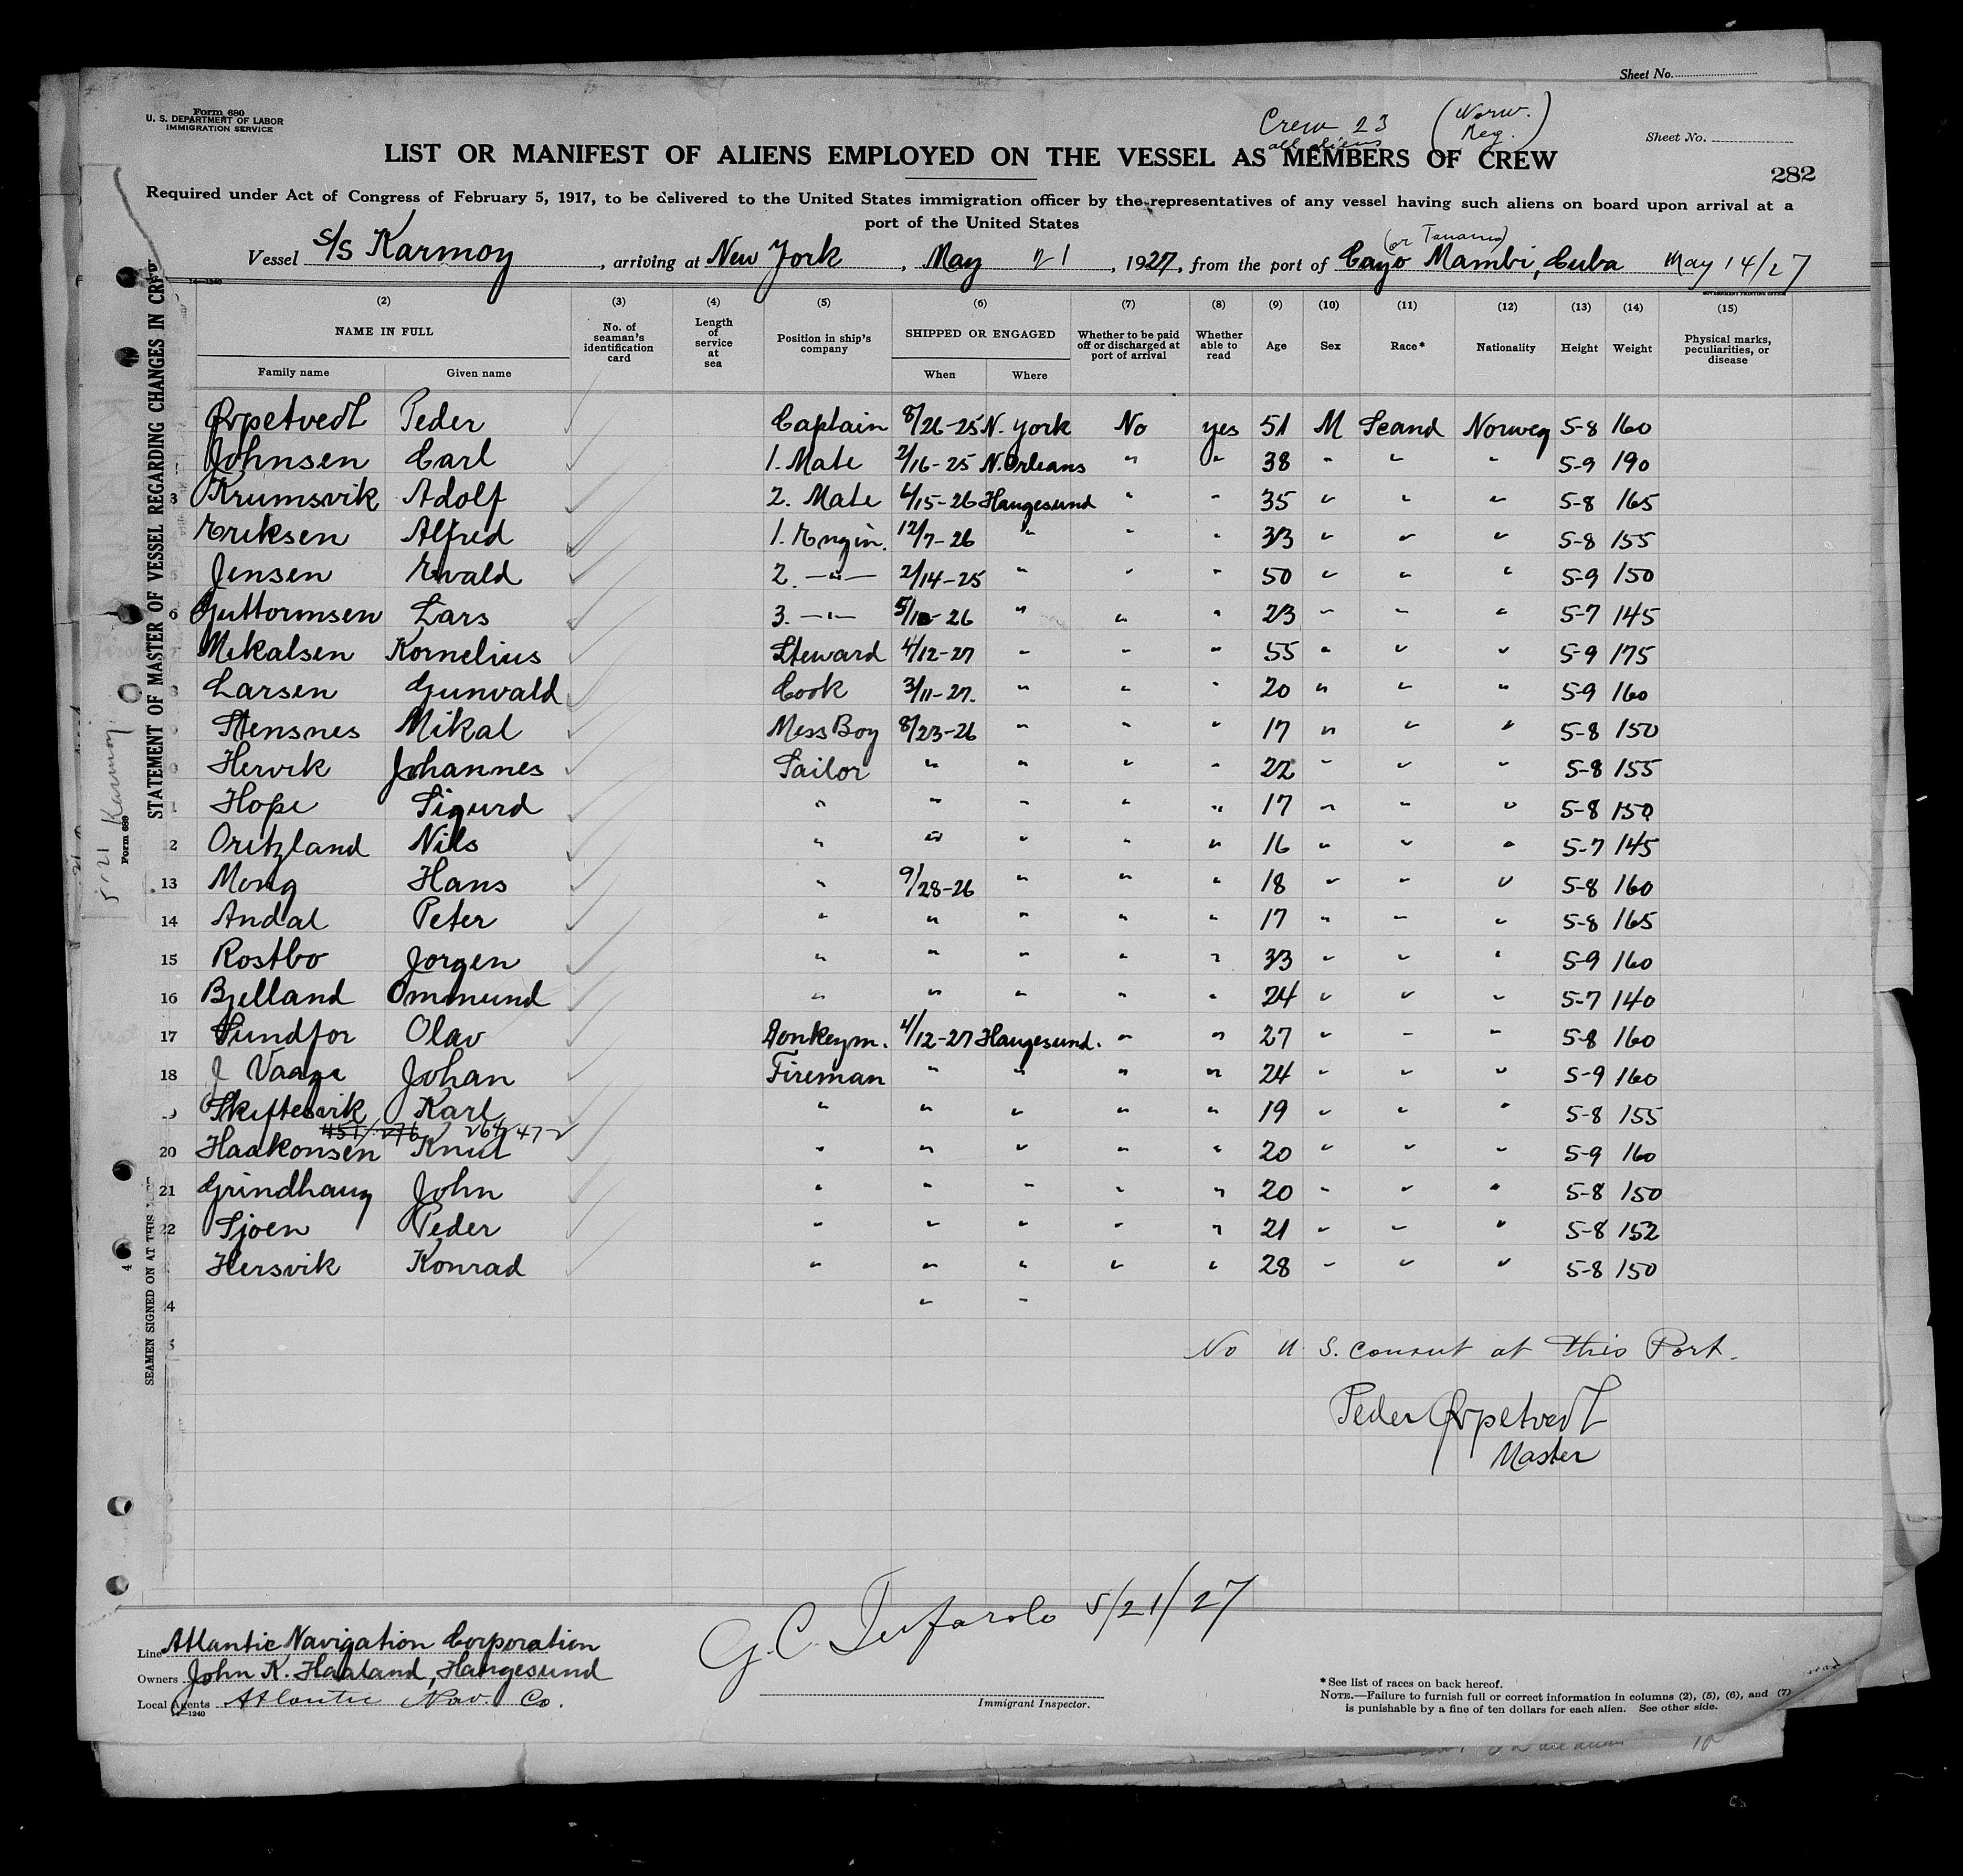 Sheet No.
Form 680
U. S. DEPARTMENT OF LABOR
IMMIGRATION SERVICE
Crew 23 (Norw. Reg.)
all aliens
Sheet No.
LIST OR MANIFEST OF ALIENS EMPLOYED ON THE VESSEL AS MEMBERS OF CREW
282
Required under Act of Congress of February 5, 1917, to be delivered to the United States immigration officer by the representatives of any vessel having such aliens on board upon arrival at a
port of the United States
(or Tanamo)
Vessel S/S Karmoy, arriving at New York, May 21, 1927, from the port of Cayo Mambi, Cuba May 14/27
14—1240 GOVERNMENT PRINTING OFFICE
(2) (3) (4) (5) (6) (7) (8) (9) (10) (11) (12) (13) (14) (15)
NAME IN FULL No. of seaman's identification card Length of service at sea Position in ship's company SHIPPED OR ENGAGED Whether to be paid off or discharged at port of arrival Whether able to read Age Sex Race* Nationality Height Weight Physical marks, peculiarities, or disease
Family name Given name When Where
Peder Captain 8/26-25 N. York No yes 51 M Scand Norweg 5-8 160
Johnsen Carl 1. Mate 2/16-25 N. Orleans " " 38 " " " 5-9 190
3 Krumsvik Adolf 2. Mate 4/15-26 Haugesund " " 35 " " " 5-8 165
Eriksen Alfred 1. Engin. 12/7-26 " " " 33 " " " 5-8 155
5 Jensen Evald 2. —"— 2/14-25 " " " 50 " " " 5-9 150
6 Guttormsen Lars 3. —"— 5/10-26 " " " 23 " " " 5-7 145
7 Mikalsen Kornelius Steward 4/12-27 " " " 55 " " " 5-9 175
8 Larsen Gunvald Cook 3/11-27. " " " 20 " " " 5-9 160
Stensnes Mikal Mess Boy 8/23-26 " " " 17 " " " 5-8 150
0 Hervik Johannes Sailor " " " " 22 " " " 5-8 155
1 Hope Sigurd " " " " " 17 " " " 5-8 150
2 Oritzland Nils " " " " " 16 " " " 5-7 145
13 Mong Hans " 9/28-26 " " " 18 " " " 5-8 160
14 Andal Peter " " " " " 17 " " " 5-8 165
15 Rostbo Jorgen " " " " " 33 " " " 5-9 160
16 Bjelland Ommund " " " " " 24 " " " 5-7 140
17 Sundfor Olav Donkeym. 4/12-27 Haugesund. " " 27 " " " 5-8 160
18 J Vaage Johan Fireman " " " " 24 " " " 5-9 160
Skiftesvik Karl " " " " " 19 " " " 5-8 155
451/276 264/472
20 Haakonsen Knut " " " " " 20 " " " 5-9 160
21 Grindhaug John " " " " " 20 " " " 5-8 150
22 Sjoen Peder " " " " " 21 " " " 5-8 152
Hersvik Konrad " " " " " 28 " " " 5-8 150
4 " "
No U. S. consul at this Port.
Peder
Master
G. C. 5/21/27
Line Atlantic Navigation Corporation
Owners John K. Haaland, Haugesund
Local Agents Atlantic Nav. Co.
14—1240
Immigrant Inspector.
*See list of races on back hereof.
NOTE.—Failure to furnish full or correct information in columns (2), (5), (6), and (7)
is punishable by a fine of ten dollars for each alien. See other side.
STATEMENT OF MASTER OF VESSEL REGARDING CHANGES IN CREW
Form 689
5/21 Karmoy
SEAMEN SIGNED ON AT THIS